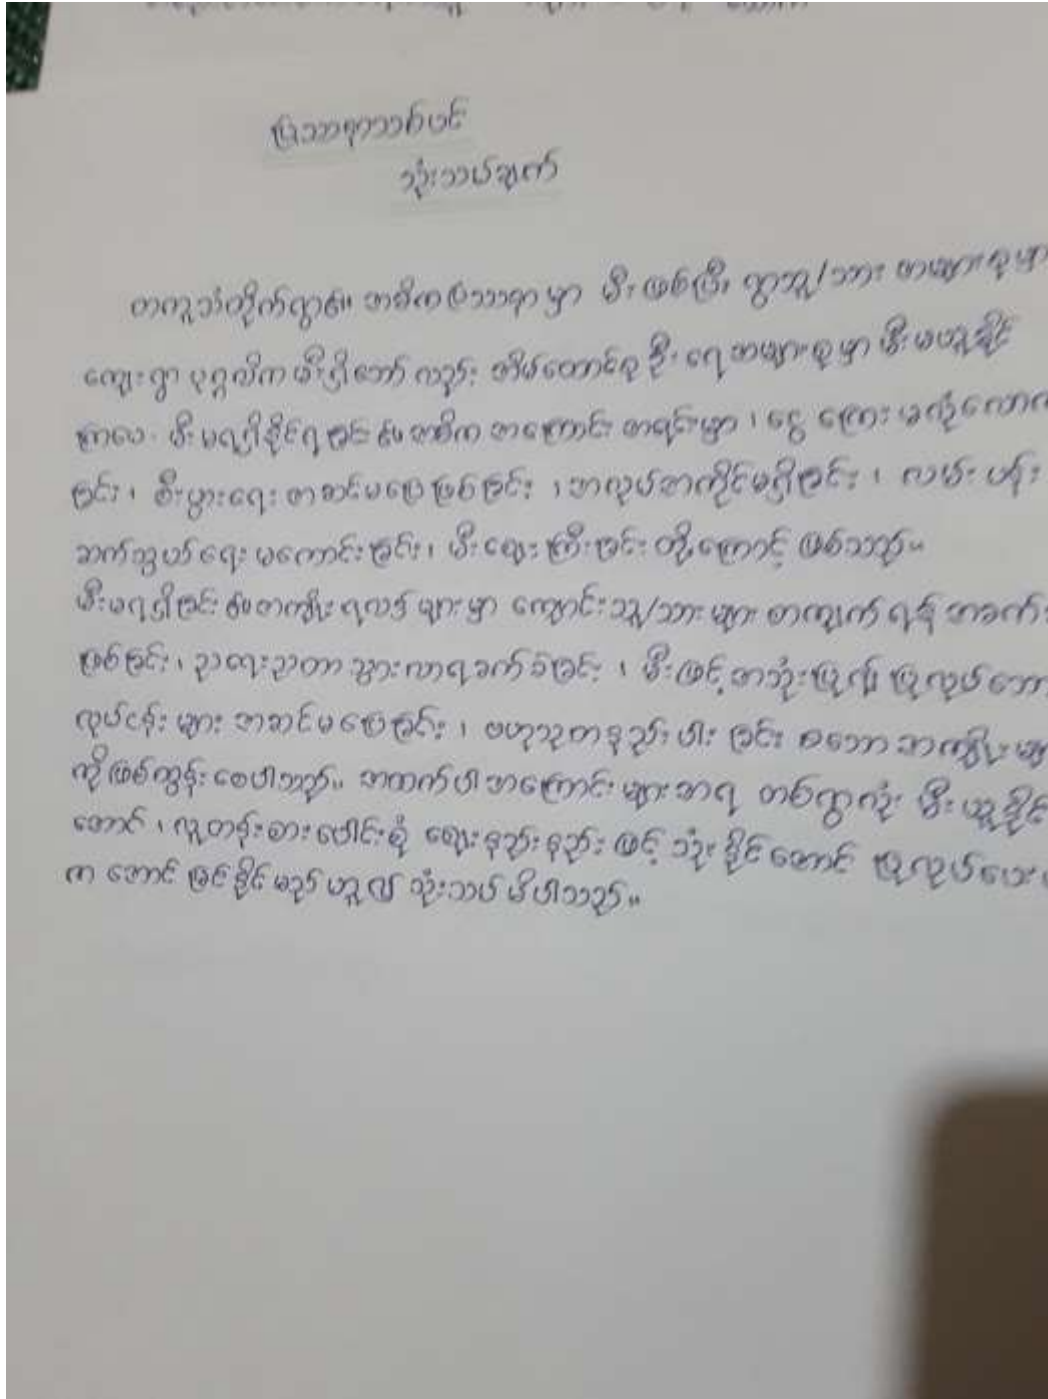 ပြဿနာသစ်ပင်
သုံးသပ်ချက်
တကူသံတိုက်ရွာ၏ အဓိကပြဿနာမှာ မီးဖြစ်ပြီး ရွာသူ/သား အများစုမှာ
ကျေးရွာ ပုဂ္ဂလိကမီးရှိသော်လည်း အိမ်ထောင်စုဦးရေအများစုမှာ မီးမယူနိုင်
ကြပေ။ မီးမရရှိနိုင်ရခြင်း၏အဓိက အကြောင်းအရင်းမှာ၊ ငွေကြေးမလုံလောက်
ခြင်း၊ စီးပွားရေးအဆင်မပြေဖြစ်ခြင်း၊ အလုပ်အကိုင်မရှိခြင်း၊ လမ်းပန်း
ဆက်သွယ်ရေးမကောင်းခြင်း၊ မီးဈေးကြီးခြင်းတို့ကြောင့် ဖြစ်သည်။
မီးမရရှိခြင်း၏အကျိုးရလဒ်များမှာ ကျောင်းသူ/သားများ စာကျက်ရန် အခက်
ဖြစ်ခြင်း၊ ညရေးညတာသွားလာရခက်ခဲခြင်း၊ မီးဖြင့်အသုံးပြု၍ ပြုလုပ်သော
လုပ်ငန်းများ အဆင်မပြေခြင်း၊ ဗဟုသုတနည်းပါးခြင်း စသော အကျိုးများ
ကိုဖြစ်ထွန်းစေပါသည်။ အထက်ပါအကြောင်းများအရ တစ်ရွာလုံး မီးယူနိုင်
အောင်၊ လူတန်းစားပေါင်းစုံ ဈေးနည်းနည်းဖြင့် သုံးနိုင်အောင် ပြုလုပ်ပေး
က အောင်မြင်နိုင်မည်ဟူ၍ သုံးသပ်မိပါသည်။